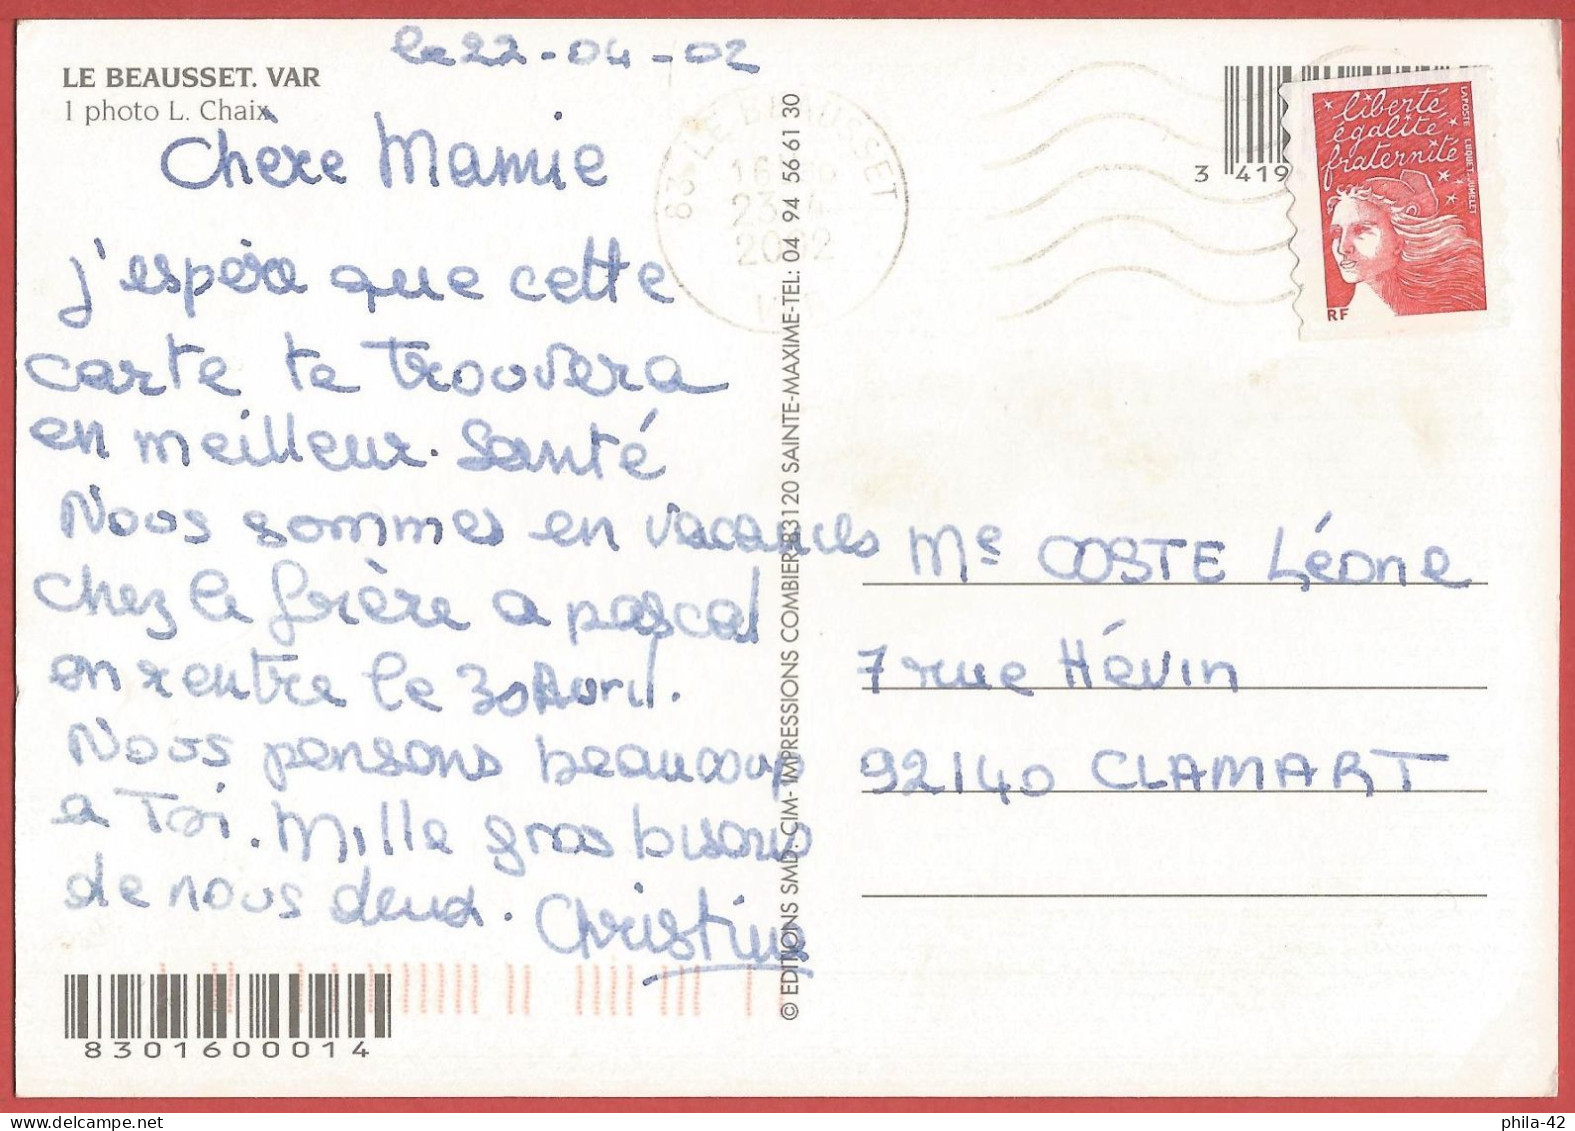 LE BEAUSSET. VAR
1 photo L. Chaix
le 22-04-02
Chère Mamie
j'espère que cette
carte te trouvera
en meilleur. Santé
Nous sommes en vacances
chez le frère a pascal
on rentre le 30 Avril.
Nous pensons beaucoup
a Toi. Mille gros bisous
de nous deux. Christine
8301600014
© EDITIONS SMD. CIM- IMPRESSIONS COMBIER 83120 SAINTE-MAXIME-TEL: 04 94 56 61 30
83 LE BEAUSSET
23-4
2002
VAR
3 419
liberté
égalité
fraternité
LA POSTE LUQUET-JUMELET
RF
Me COSTE Léone
7 rue Hévin
92140 CLAMART
phila-42